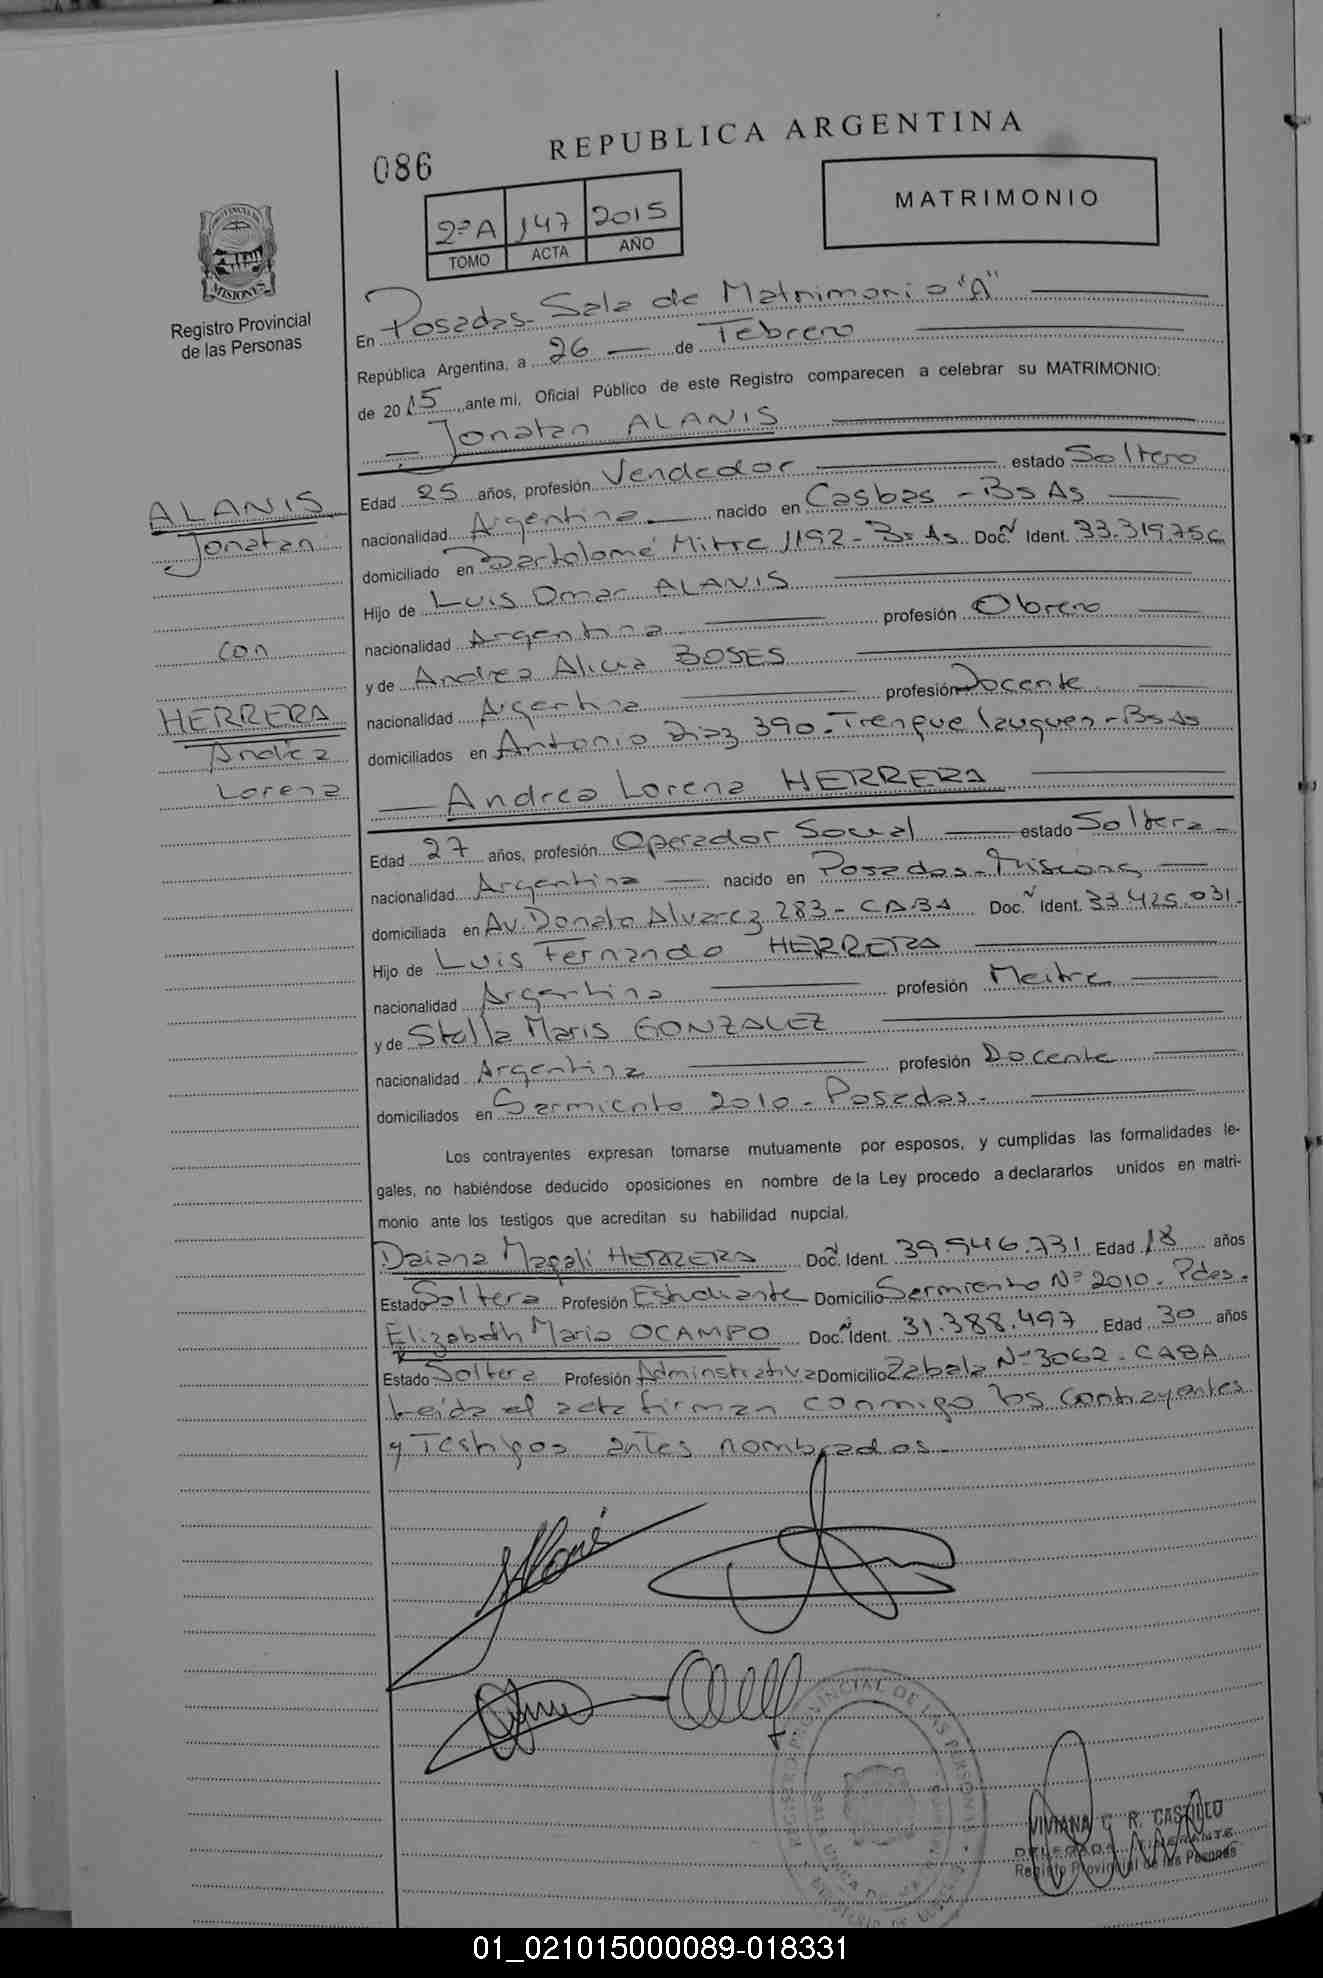 REPUBLICA ARGENTINA
086
MATRIMONIO
2ºA 147 2015
TOMO ACTA AÑO
PROVINCIA DE
MISIONES
Registro Provincial
de las Personas
En Posadas- Sala de Matrimonio "A"
República Argentina, a 26 de Febrero
de 2015 ,ante mi, Oficial Público de este Registro comparecen a celebrar su MATRIMONIO:
Jonatan ALANIS
ALANIS
Jonatan
con
HERRERA
Andrea
Lorena
Edad 25 años, profesión Vendedor estado Soltero
nacionalidad Argentina nacido en Casbas - Bs As
domiciliado en Bartolomé Mitre 1192 - Bs As Doc. Ident. 33.319.756
Hijo de Luis Omar ALANIS
nacionalidad Argentina profesión Obrero
y de Andrea Alicia BOSES
nacionalidad Argentina profesión Docente
domiciliados en Antonio Diaz 390 - Trenque lauquen - Bs As
Andrea Lorena HERRERA
Edad 27 años, profesión Operador Social estado Soltera
nacionalidad Argentina nacido en Posadas - Misiones
domiciliada en Av. Donato Alvarez 283 - CABA Doc. Ident. 33.425.031
Hijo de Luis Fernando HERRERA
nacionalidad Argentina profesión Meitre
y de Stella Maris GONZALEZ
nacionalidad Argentina profesión Docente
domiciliados en Sarmiento 2010 - Posadas -
Los contrayentes expresan tomarse mutuamente por esposos, y cumplidas las formalidades le-
gales, no habiéndose deducido oposiciones en nombre de la Ley procedo a declararlos unidos en matri-
monio ante los testigos que acreditan su habilidad nupcial.
Daiana Magali HERRERA Doc. Ident. 39.946.731 Edad 18 años
Estado Soltera Profesión Estudiante Domicilio Sarmiento Nº 2010 - Pdas.
Elizabeth Maria OCAMPO Doc. Ident. 31.388.497 Edad 30 años
Estado Soltera Profesión Adminstrativa Domicilio Zabala Nº 3062 - CABA
Leida el acta firman conmigo los contrayentes
y Testigos antes nombrados -
REGISTRO PROVINCIAL DE LAS PERSONAS
VIVIANA C. R. CASTILLO
Registro Provincial de las Personas
01_021015000089-018331